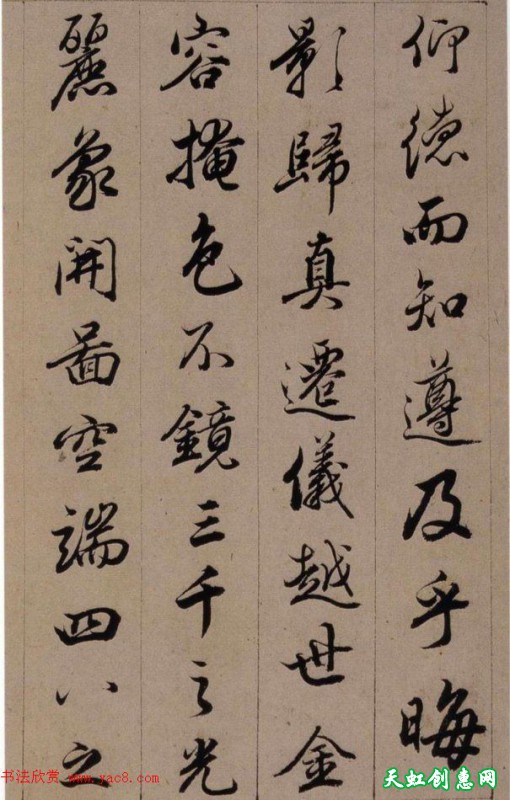 仰德而知遵及乎晦
影歸真遷儀越世金
容掩色不鏡三千之光
麗象開啚空端四八之
书法欣赏 www.yac8.com
天虹创惠网